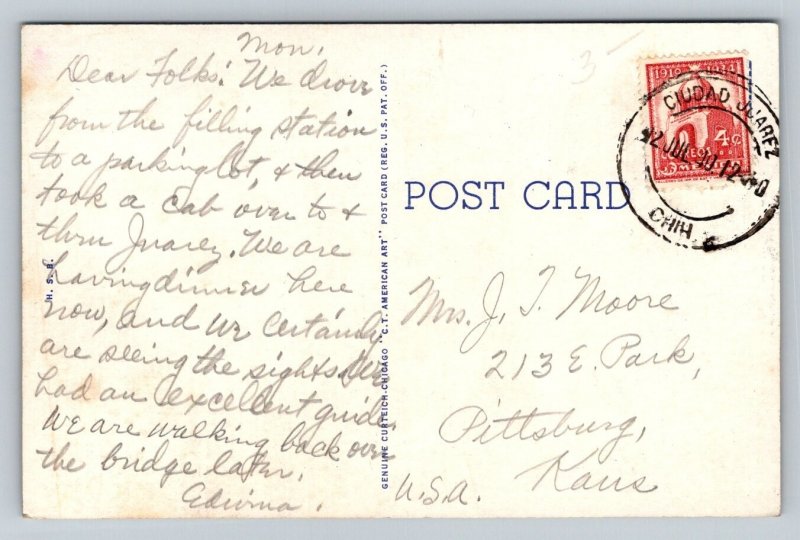 Mon.
Dear Folks: We drove
from the filling station
to a parking lot, & then
took a cab over to &
thru Juarez. We are
having dinner here
now, and we certainly
are seeing the sights. We
had an excellent guide.
We are walking back over
the bridge later.
Edwina.
H. S. B.
GENUINE CURTEICH-CHICAGO "C.T. AMERICAN ART" POST CARD (REG. U. S. PAT. OFF.)
POST CARD
3
1919 1934
4¢
CORREOS
CIUDAD JUAREZ
12 JUL 40 12-40
CHIH.
Mrs. J. T. Moore
213 E. Park,
Pittsburg,
Kans
U.S.A.